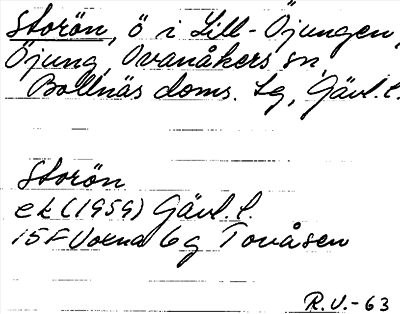 Storön, ö i Lill-Öjungen,
Öjung, Ovanåkers sn,
Bollnäs doms. lg, Gävl. l.
Storön
ek (1959) Gävl. l.
15F Voxna 6g Tovåsen
R.V.-63